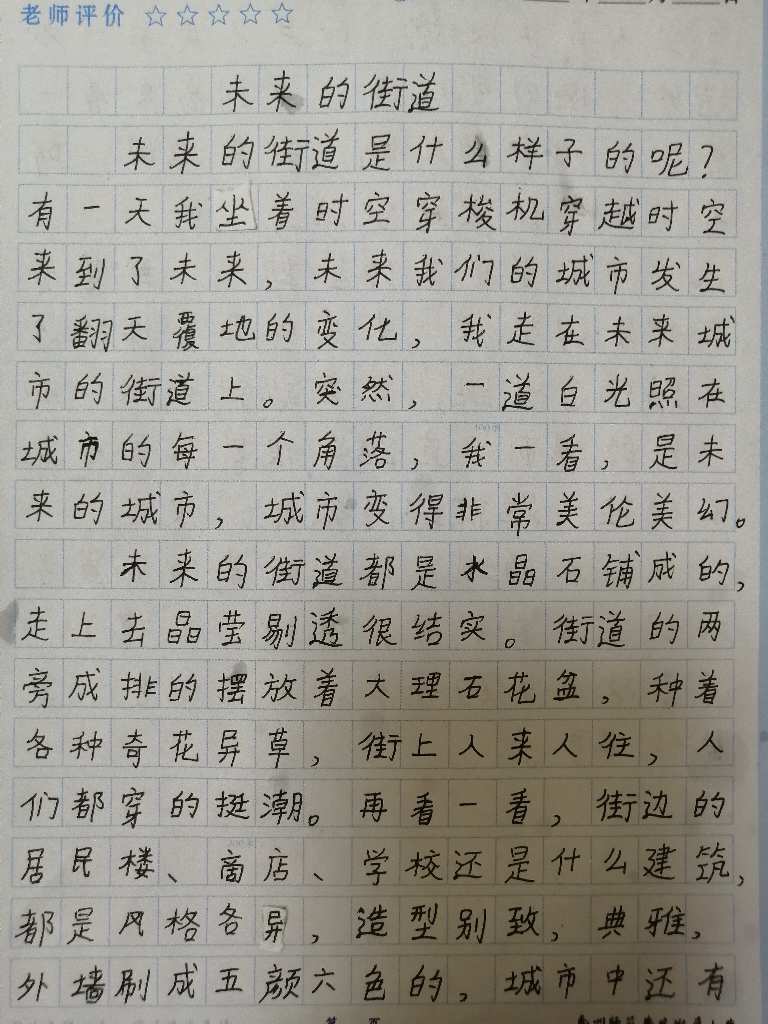 老师评价 ☆☆☆☆☆
未来的街道
未来的街道是什么样子的呢?
有一天我坐着时空穿梭机穿越时空
来到了未来,未来我们的城市发生
了翻天覆地的变化,我走在未来城
市的街道上。突然,一道白光照在
城市的每一个角落,我一看,是未
来的城市,城市变得非常美伦美幻。
未来的街道都是水晶石铺成的,
走上去晶莹剔透很结实。街道的两
旁成排的摆放着大理石花盆,种着
各种奇花异草,街上人来人往,人
们都穿的挺潮。再看一看,街边的
居民楼、商店、学校还是什么建筑,
都是风格各异,造型别致,典雅,
外墙刷成五颜六色的,城市中还有